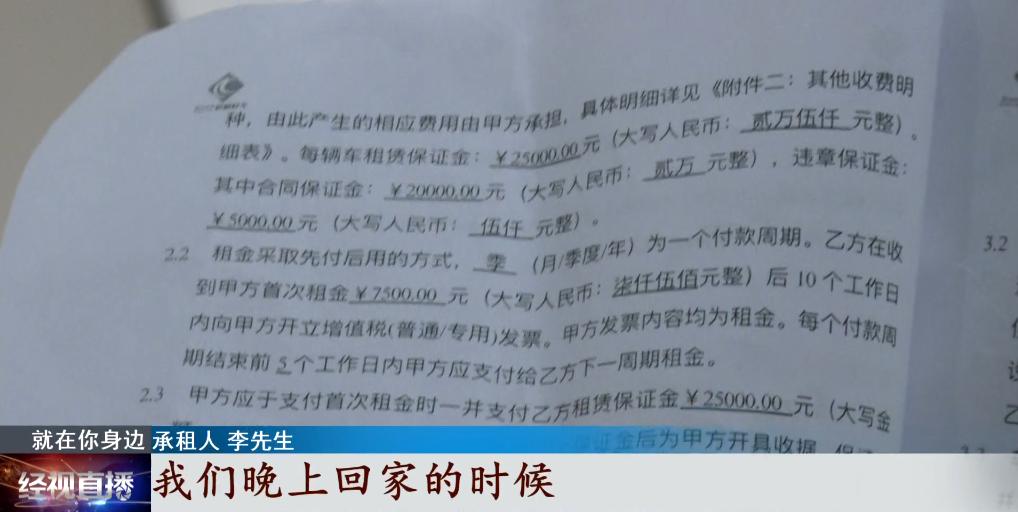 种，由此产生的相应费用由甲方承担，具体明细详见《附件二：其他收费明
细表》。每辆车租赁保证金：￥25000.00元（大写人民币：贰万伍仟 元整）。
其中合同保证金：￥20000.00元（大写人民币：贰万 元整），违章保证金：
￥5000.00元（大写人民币：伍仟 元整）。
2.2 租金采取先付后用的方式，季（月/季度/年）为一个付款周期。乙方在收
到甲方首次租金￥7500.00 元（大写人民币：柒仟伍佰元整）后 10 个工作日
内向甲方开立增值税(普通/专用)发票。甲方发票内容均为租金。每个付款周
期结束前 5 个工作日内甲方应支付给乙方下一周期租金。
2.3 甲方应于支付首次租金时一并支付乙方租赁保证金￥25000.00 元（大写金
保证金后为甲方开具收据
3.2
就在你身边 承租人 李先生
经视直播
我们晚上回家的时候